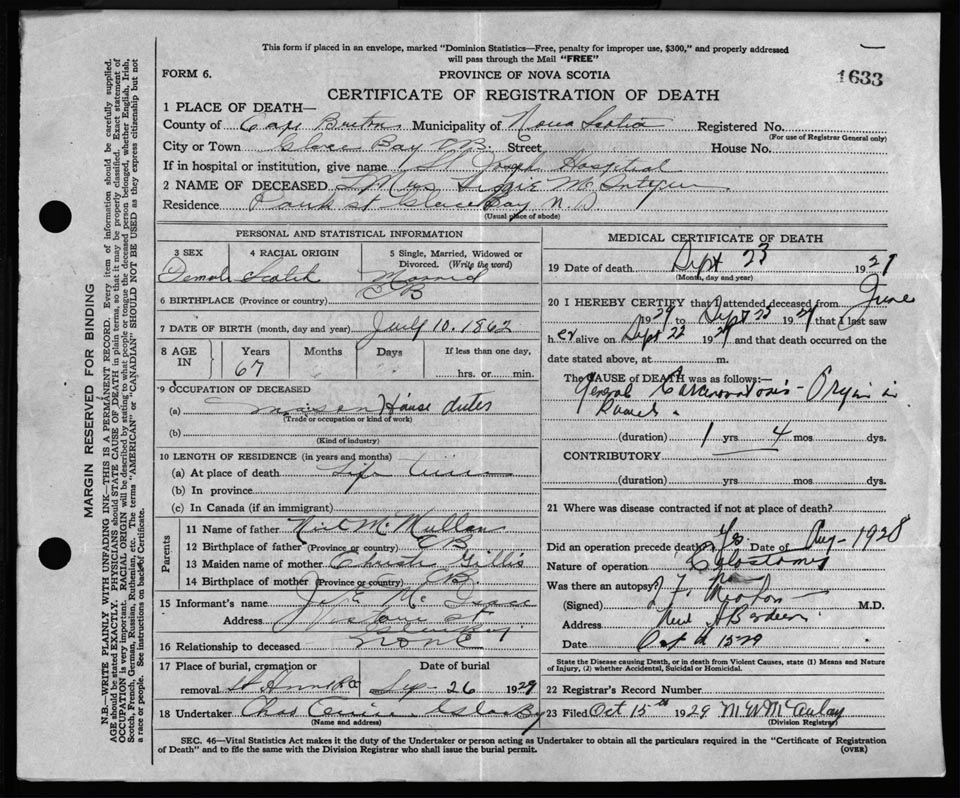 This form if placed in an envelope, marked "Dominion Statistics—Free, penalty for improper use, $300," and properly addressed
will pass through the Mail "FREE"
FORM 6.
PROVINCE OF NOVA SCOTIA
1633
CERTIFICATE OF REGISTRATION OF DEATH
1 PLACE OF DEATH—
County of Cape Breton Municipality of Nova Scotia Registered No.
(For use of Registrar General only)
City or Town Glace Bay Street House No.
If in hospital or institution, give name St Joseph Hospital
2 NAME OF DECEASED Mrs Lizzie McIntyre
Residence Park St Glace Bay
(Usual place of abode)
PERSONAL AND STATISTICAL INFORMATION
3 SEX
4 RACIAL ORIGIN
5 Single, Married, Widowed or Divorced. (Write the word)
Female Scotch Married
6 BIRTHPLACE (Province or country) CB
7 DATE OF BIRTH (month, day and year) July 10. 1862
8 AGE IN Years Months Days If less than one day,
67 hrs. or min.
9 OCCUPATION OF DECEASED
(a) House duties
(Trade or occupation or kind of work)
(b)
(Kind of industry)
10 LENGTH OF RESIDENCE (in years and months)
(a) At place of death Life time
(b) In province
(c) In Canada (if an immigrant)
Parents
11 Name of father Neil McMullan
12 Birthplace of father (Province or country) CB
13 Maiden name of mother Christi Gillis
14 Birthplace of mother (Province or country) CB.
15 Informant's name
Address
16 Relationship to deceased NONE
17 Place of burial, cremation or removal Date of burial
St Anns Sep 26 1929
18 Undertaker Chas
(Name and address)
MEDICAL CERTIFICATE OF DEATH
19 Date of death Sept 23 1929
(Month, day and year)
20 I HEREBY CERTIFY that I attended deceased from June
1929 to Sept 23 1929 that I last saw
her alive on Sept 22 1929 and that death occurred on the
date stated above, at m.
The CAUSE of DEATH was as follows:—
General Carcinomatosis - Origin in
Bowel.
(duration) 1 yrs 4 mos dys.
CONTRIBUTORY
(duration) yrs. mos. dys.
21 Where was disease contracted if not at place of death?
Did an operation precede death? Yes Date of Aug - 1928
Nature of operation Colostomy
Was there an autopsy?
(Signed) M.D.
Address New Aberdeen
Date Oct 15-29
State the Disease causing Death, or in death from Violent Causes, state (1) Means and Nature of Injury, (2) whether Accidental, Suicidal or Homicidal.
22 Registrar's Record Number
23 Filed Oct 15th 1929 M W McAulay
(Division Registrar)
SEC. 46—Vital Statistics Act makes it the duty of the Undertaker or person acting as Undertaker to obtain all the particulars required in the "Certificate of Registration
of Death" and to file the same with the Division Registrar who shall issue the burial permit.
(OVER)
MARGIN RESERVED FOR BINDING
N.B.—WRITE PLAINLY WITH UNFADING INK—THIS IS A PERMANENT RECORD. Every item of information should be carefully supplied.
AGE should be stated EXACTLY. PHYSICIANS should STATE CAUSE OF DEATH in plain terms, so that it may be properly classified. Exact statement of
OCCUPATION is very important. RACIAL ORIGIN will be described by stating to what people or tongue the deceased person belonged, whether English, Irish,
Scotch, French, German, Russian, Ruthenian, etc. The terms "AMERICAN" or "CANADIAN" SHOULD NOT BE USED as they express citizenship but not
a race or people. See instructions on back of Certificate.